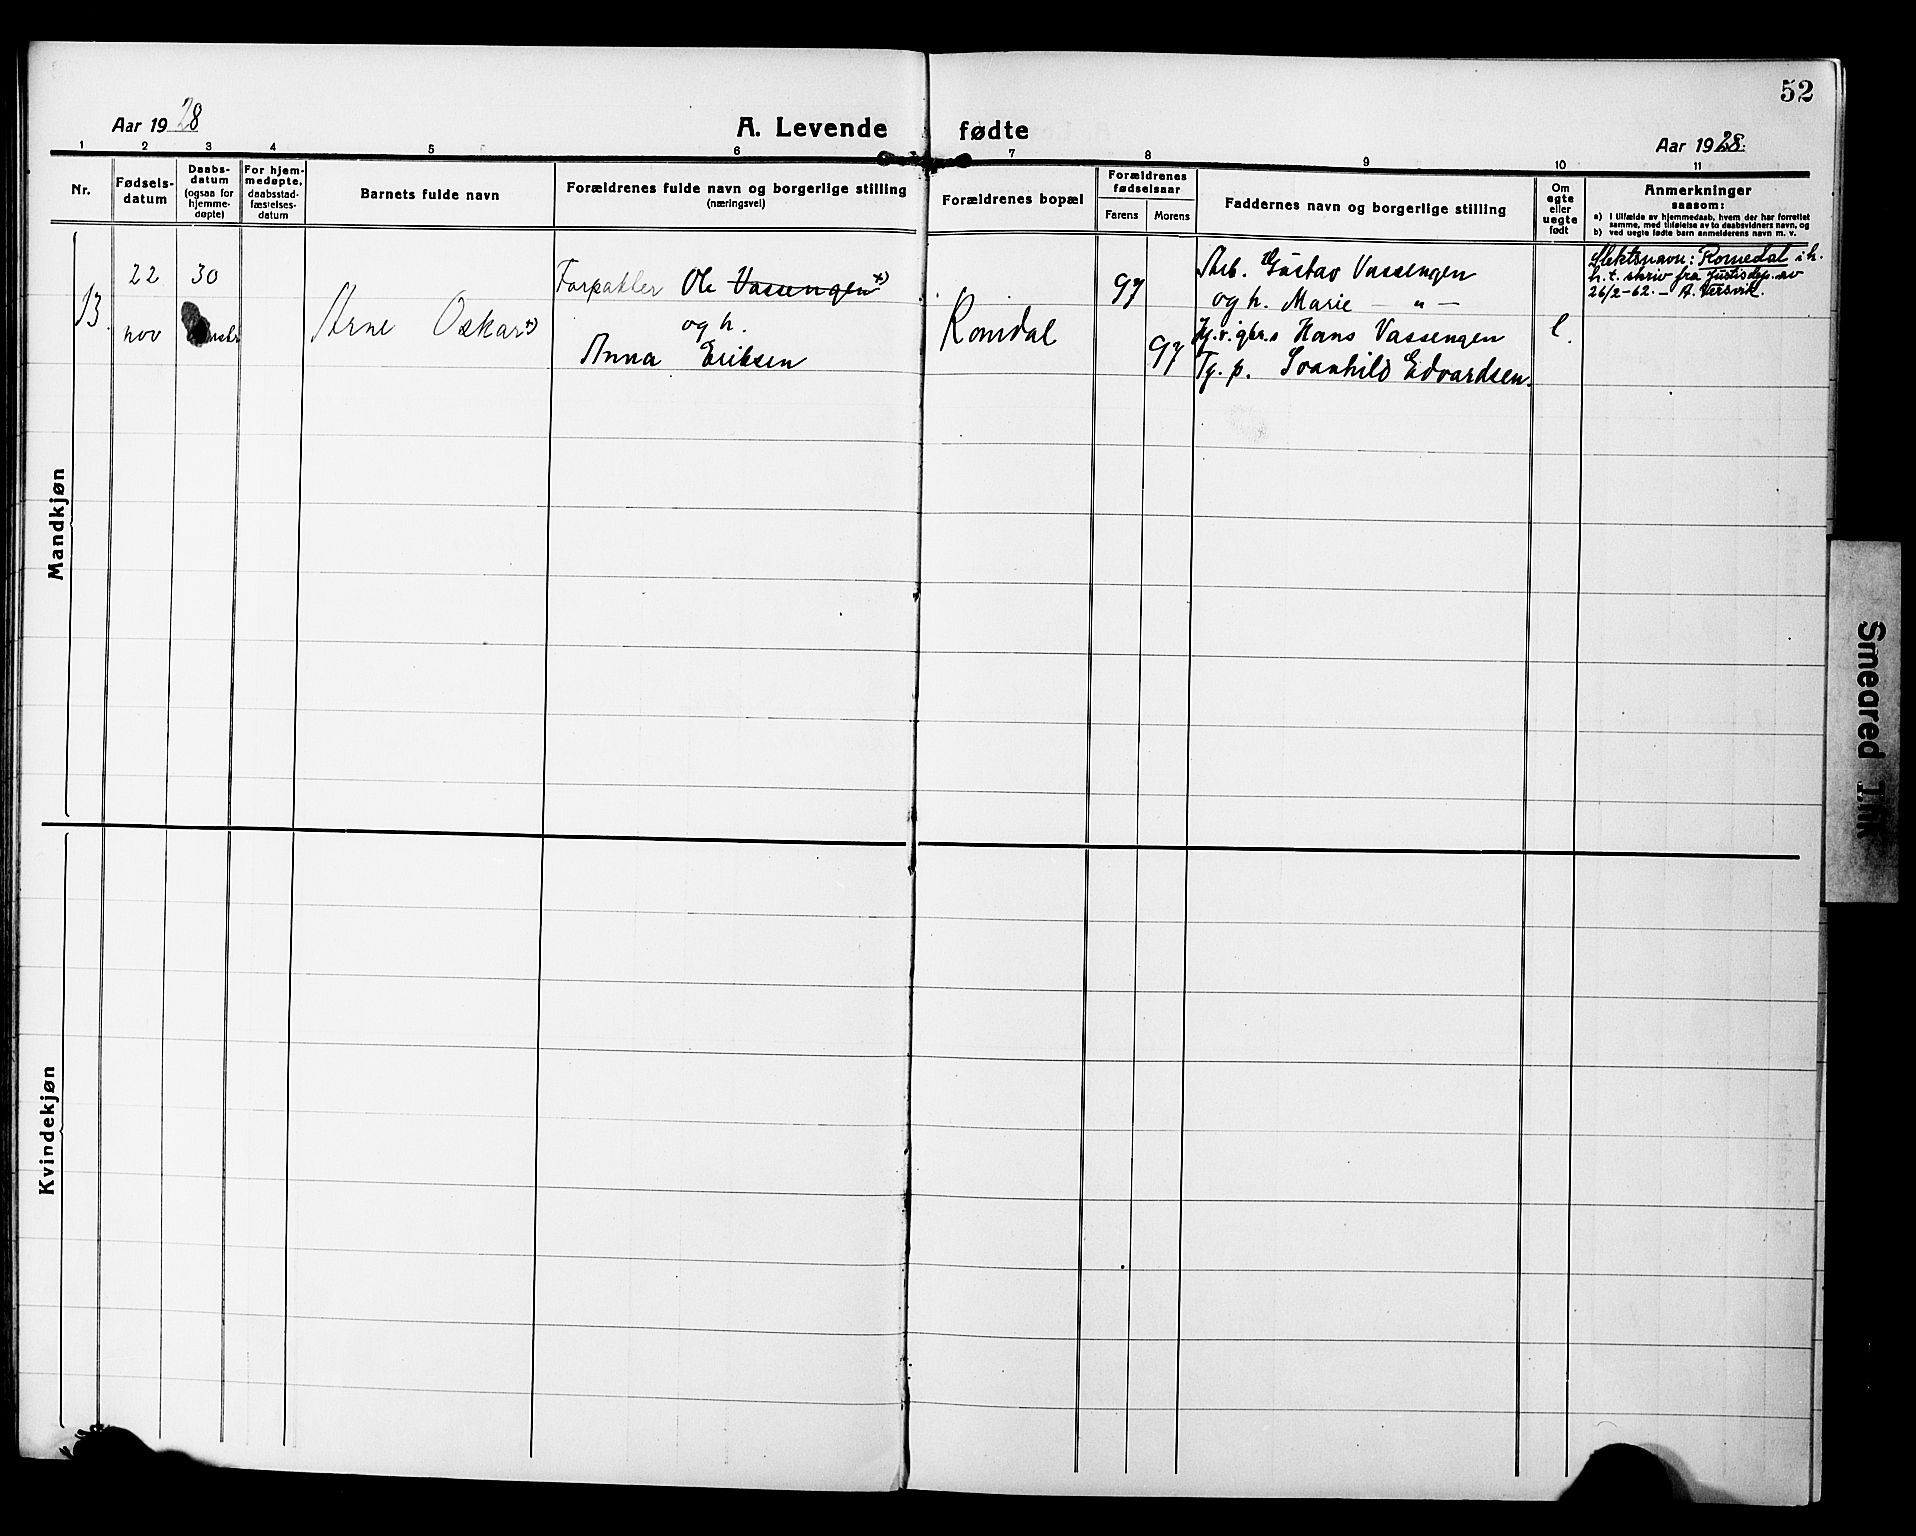 52
Aar 1928
A. Levende fødte
Aar 1928.
1 2 3 4 5 6 7 8 9 10 11
Nr.
Fødsels-
datum
Daabs-
datum
(ogsaa for
hjemme-
døpte)
For hjem-
medøpte,
daabsstad-
fæstelses-
datum
Barnets fulde navn
Forældrenes fulde navn og borgerlige stilling
(næringsvei)
Forældrenes bopæl
Forældrenes
fødselsaar
Farens Morens
Faddernes navn og borgerlige stilling
Om
egte
eller
uegte
født
Anmerkninger
saasom:
a) I tilfælde av hjemmedaab, hvem der har forrettet
samme, med tilføielse av to daabsvidners navn, og
b) ved uegte fødte barn anmelderens navn m. v.
Mandkjøn
13.
22
nov
30
Arne Oskar +)
Forpakter Ole Vassengen +)
og h.
Anna Eriksen
Romdal
97
97
Arb. Gustav Vassengen
og h. Marie — " —
Hans Vassengen
Tj. p. Svanhild Edvardsen.
e.
Slektsnavn: Romedal i h.
h. t. skriv fra Justisdep. av
26/2-62. – A. Versvik.
Kvindekjøn
Smeared Ink